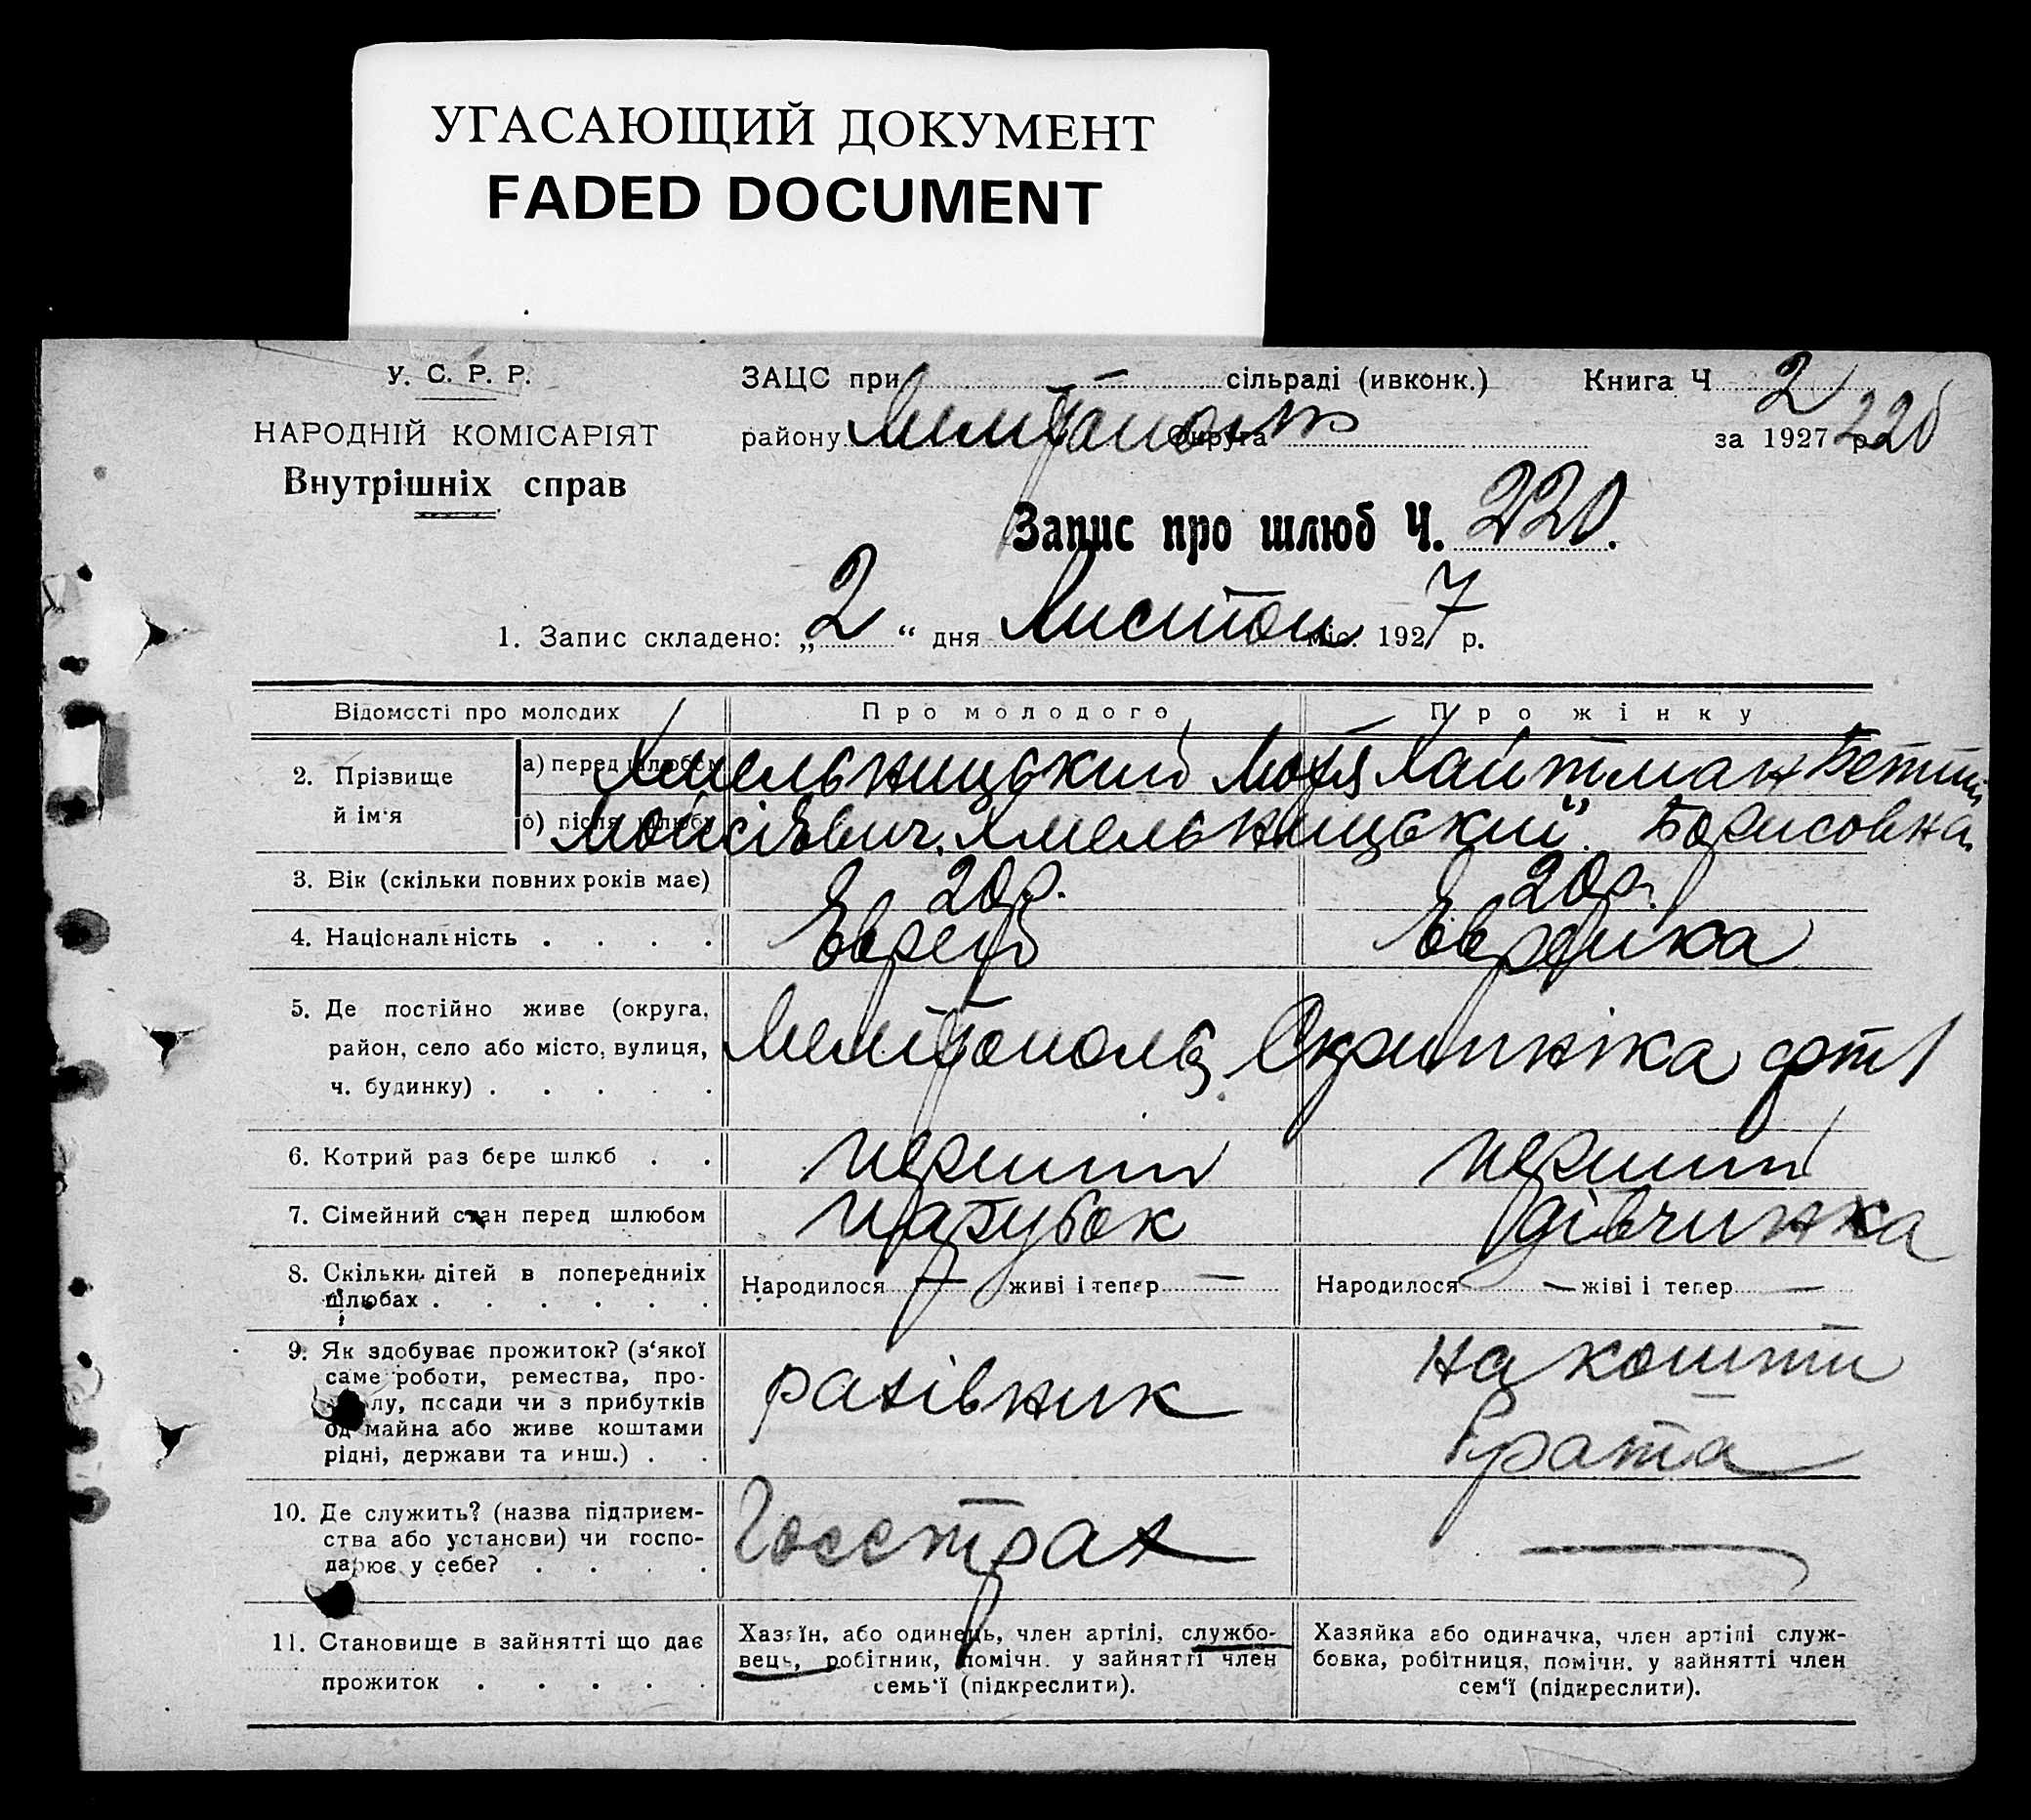 УГАСАЮЩИЙ ДОКУМЕНТ
FADED DOCUMENT
У. С. Р. Р.
НАРОДНІЙ КОМІСАРІЯТ
Внутрішніх справ
ЗАЦС при — сільраді (ивконк.) Книга Ч 2
району Мелітополь округа за 1927 р. 220
Запис про шлюб Ч. 220.
1. Запис складено: „ 2 “ дня Листоп міс. 1927 р.
Відомості про молодих Про молодого Про жінку
2. Прізвище й ім'я
а) перед шлюбом Хмельницький Мотя Хайтман Бетти
б) після шлюбу Мойсієвич. Хмельницький". Борисовна
3. Вік (скільки повних років має) 20 р. 20 р.
4. Національність . . . . Еврей Еврейка
5. Де постійно живе (округа,
район, село або місто, вулиця,
ч. будинку) . . . . .
Мелітополь Скрипніка
6. Котрий раз бере шлюб . . перший перший
7. Сімейний стан перед шлюбом парубок дівчинка
8. Скільки дітей в попередниіх
шлюбах . . . . . .
Народилося — живі і тепер — Народилося — жіві і тепер —
9. Як здобуває прожиток? (з'якої
саме роботи, ремества, про-
лу, посади чи з прибутків
од майна або живе коштами
рідні, держави та инш.) . .
рахівник на кошти
брата
10. Де служить? (назва підприєм-
ства або установи) чи госпо-
дарює у себе? . . . .
Госстрах —
11. Становище в зайнятті що дає
прожиток . . . . .
Хазяїн, або одинець, член артілі, службо-
вець, робітник, помічн. у зайнятті член
семь'ї (підкреслити).
Хазяйка або одиначка, член артілі служ-
бовка, робітниця, помічн. у зайнятті член
сем'ї (підкреслити).